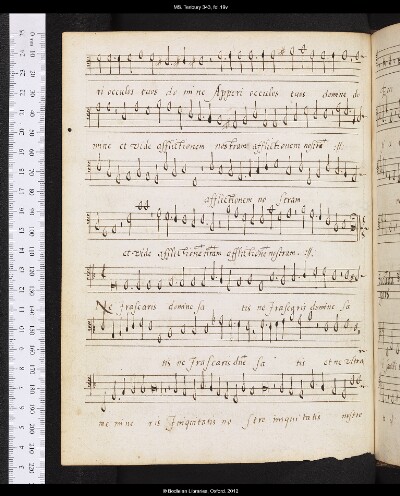 MS. Tenbury 343, fol. 19v
ri occulos tuos do mi ne Apperi occulos tuos domine do
mine et vide afflictionem nostram afflictionem nostrā :||:
afflictionem no stram
et vide afflictionē nr̄am afflictionē nostram. :||:
Ne Irascaris domine sa tis ne Irascaris domine sa
tis ne Irascaris dn̄e sa tis et ne ultra
me mine ris Iniquitatis no stre iniquitatis nostre
© Bodleian Libraries, Oxford, 2010